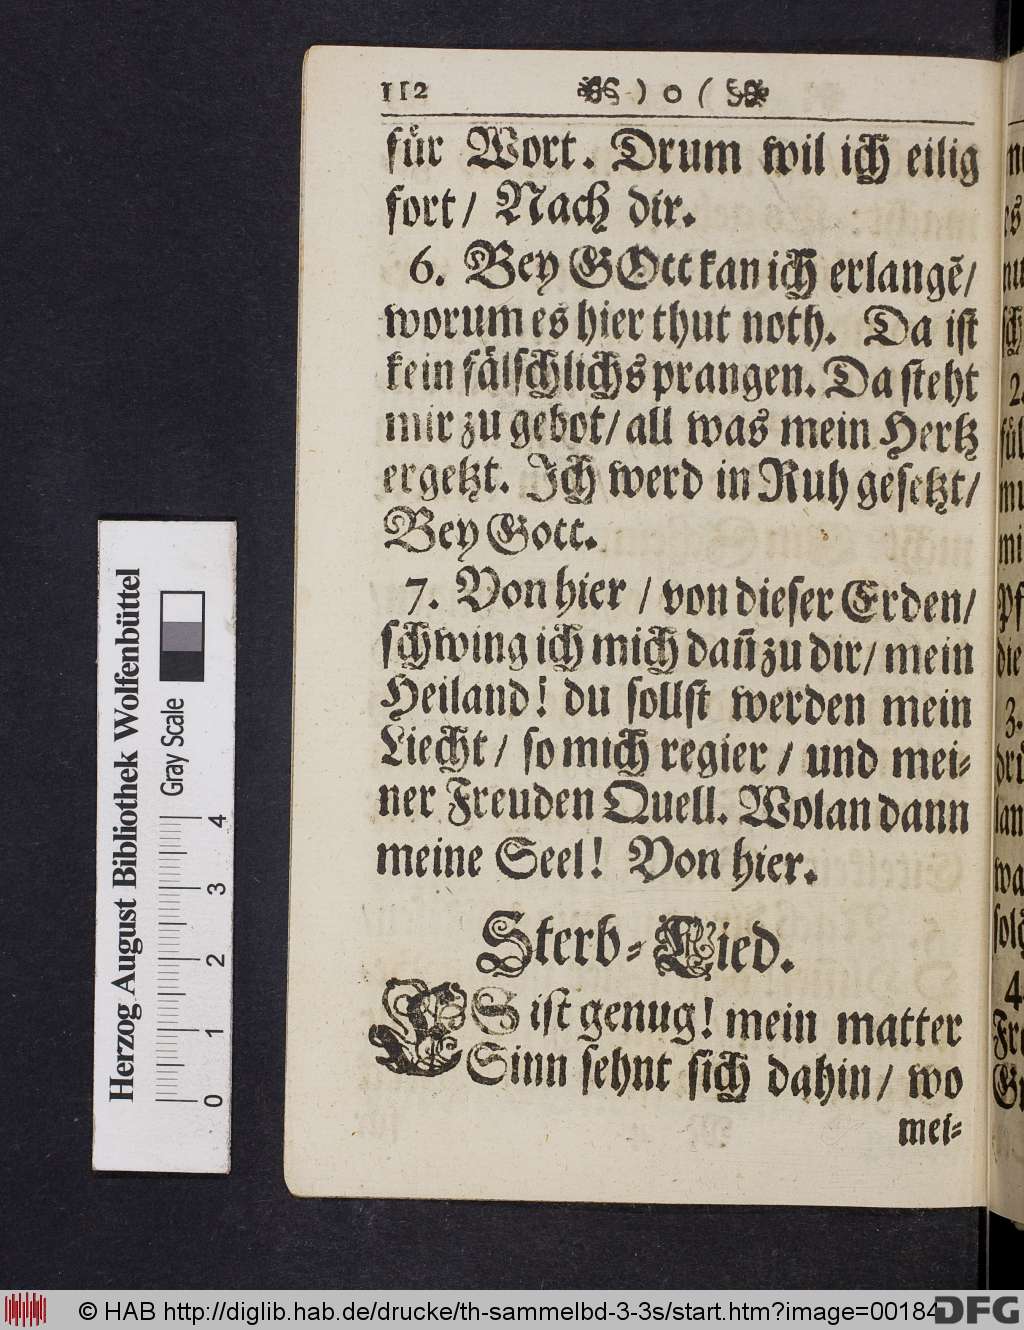 112 ) o (
fuͤr Wort. Drum wil ich eilig
fort/ Nach dir.
6. Bey GOtt kan ich erlangẽ/
worum es hier thut noth. Da ist
kein fälschlichs prangen. Da steht
mir zu gebot/ all was mein Hertz
ergetzt. Ich werd in Ruh gesetzt/
Bey Gott.
7. Von hier / von dieser Erden/
schwing ich mich dañ zu dir/ mein
Heiland! du sollst werden mein
Liecht/ so mich regier / und mei-
ner Freuden Quell. Wolan dann
meine Seel! Von hier.
Sterb-Lied.
ES ist genug! mein matter
Sinn sehnt sich dahin/ wo
mei-
Herzog August Bibliothek Wolfenbüttel
Gray Scale
0 1 2 3 4
© HAB http://diglib.hab.de/drucke/th-sammelbd-3-3s/start.htm?image=00184
DFG